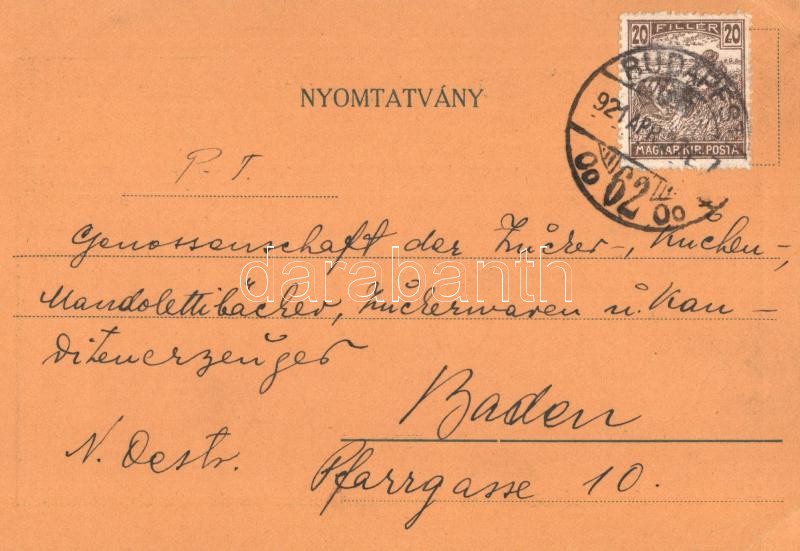 20 FILLÉR 20
MAGYAR KIR. POSTA
BUDAPEST
921 APR
62
NYOMTATVÁNY
P. T.
Genossenschaft der Zucker-, Kuchen-,
Mandolettibäcker, Zuckerwaren u. Kan-
ditenerzeuger
Baden
N. Oestr.
Pfarrgasse 10.
darabanth